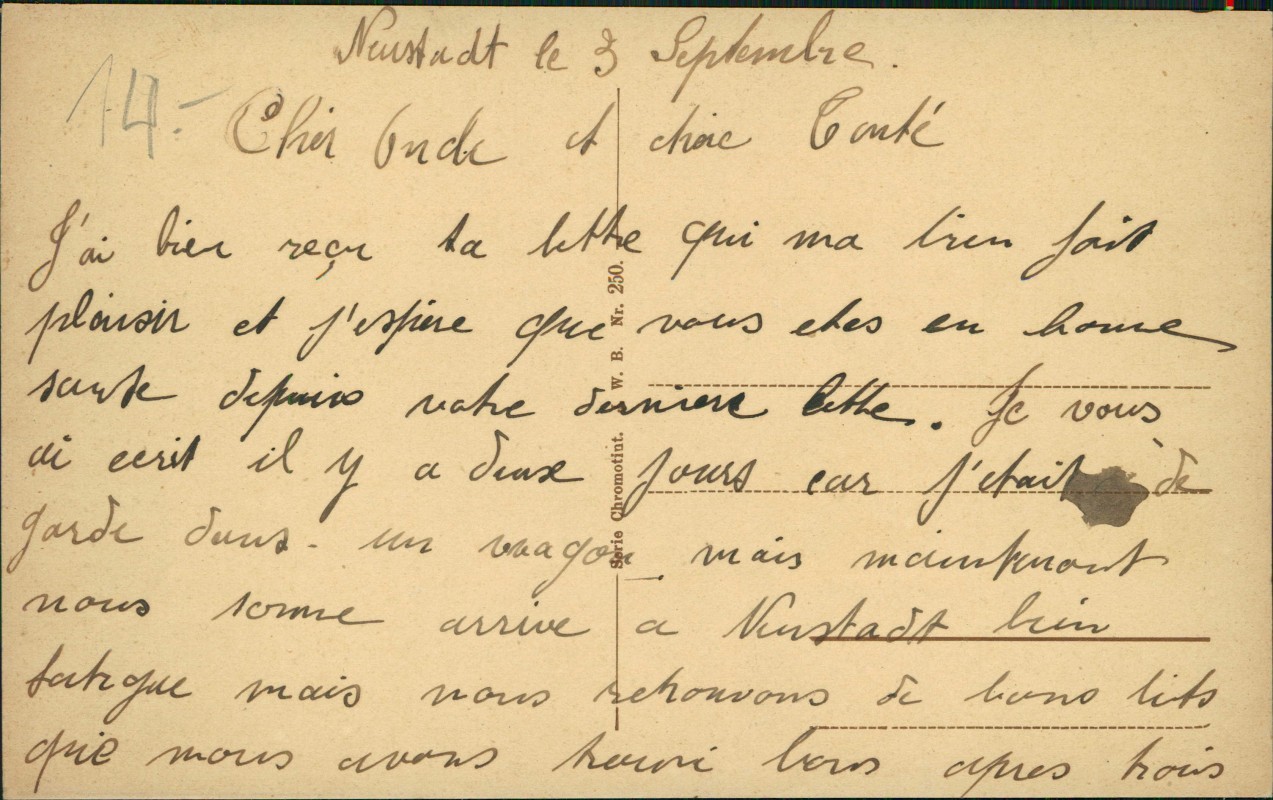 Neustadt le 3 Septembre.
14.-
Cher Oncle et chère Tanté
J'ai bien reçu ta lettre qui ma bien fait
plaisir et j'espère que vous etes en bonne
sante depuis votre derniere lettre. Je vous
ai ecrit il y a deux jours car j'etait de
garde dans un wagon mais maintenant
nous somme arrive a Neustadt bien
fatigue mais nous retrouvons de bons lits
que nous avons trouvé bons apres trois
Serie Chromotint. W. B. Nr. 250.